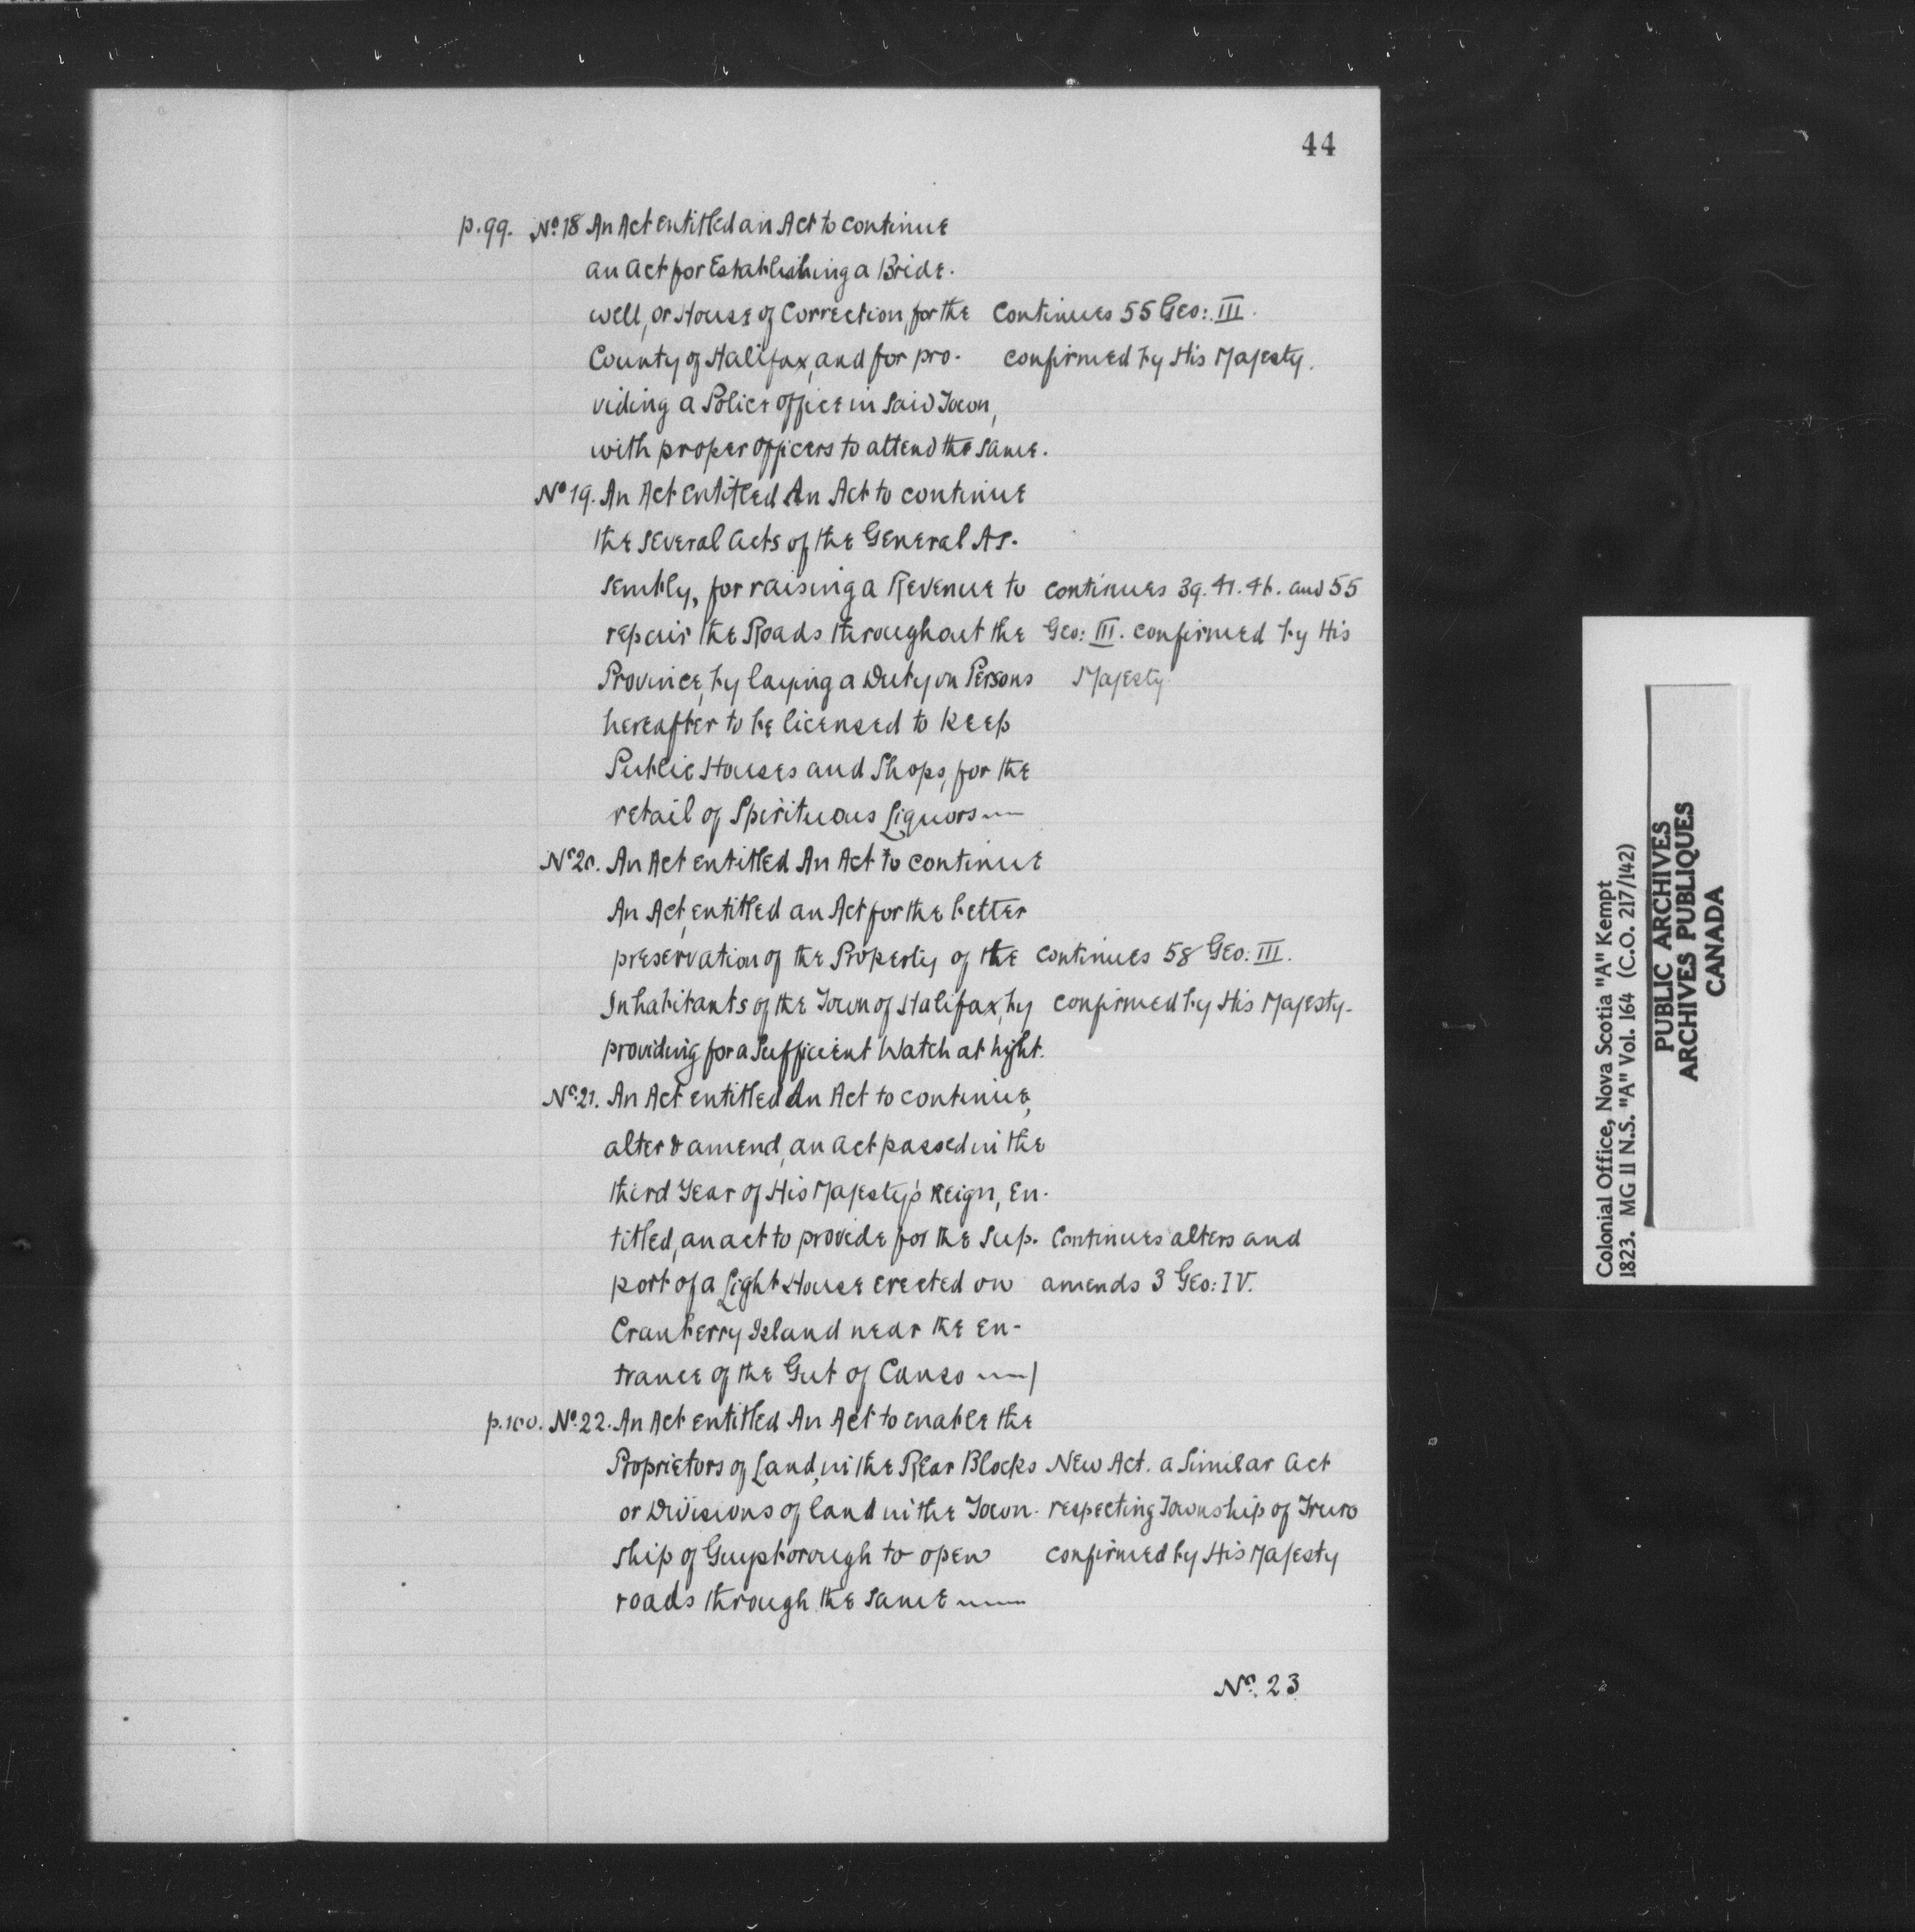 44
p.99. No. 18 An Act entitled an Act to continue
an act for Establishing a Bride-
well, or House of Correction, for the Continues 55 Geo: III.
County of Halifax, and for pro- confirmed by His Majesty.
viding a Police office in said Town,
with proper officers to attend the same.
No 19. An Act entitled An Act to continue
the several acts of the General As-
sembly, for raising a Revenue to continues 39. 41. 46. and 55
repair the Roads throughout the Geo: III. confirmed by His
Province, by laying a Duty on Persons Majesty
hereafter to be licensed to keep
Public Houses and Shops, for the
retail of Spirituous Liquors
No 20. An Act entitled An Act to continue
An Act, entitled an Act for the better
preservation of the Property of the continues 58 Geo: III.
Inhabitants of the Town of Halifax, by confirmed by His Majesty.
providing for a sufficient Watch at night.
No. 21. An Act entitled An Act to continue,
alter & amend, an act passed in the
third Year of His Majesty's Reign, En-
titled, an act to provide for the sup- Continues alters and
port of a Light House erected on amends 3 Geo: IV.
Cranberry Island near the en-
trance of the Gut of Canso
p. 100. No. 22. An Act entitled An Act to enable the
Proprietors of Land, in the Rear Blocks New Act. a similar act
or Divisions of land in the Town- respecting Township of Truro
ship of Guysborough to open confirmed by His Majesty
roads through the same
No. 23
Colonial Office, Nova Scotia "A" Kempt
1823. MG 11 N.S. "A" Vol. 164 (C.O. 217/142)
PUBLIC ARCHIVES
ARCHIVES PUBLIQUES
CANADA